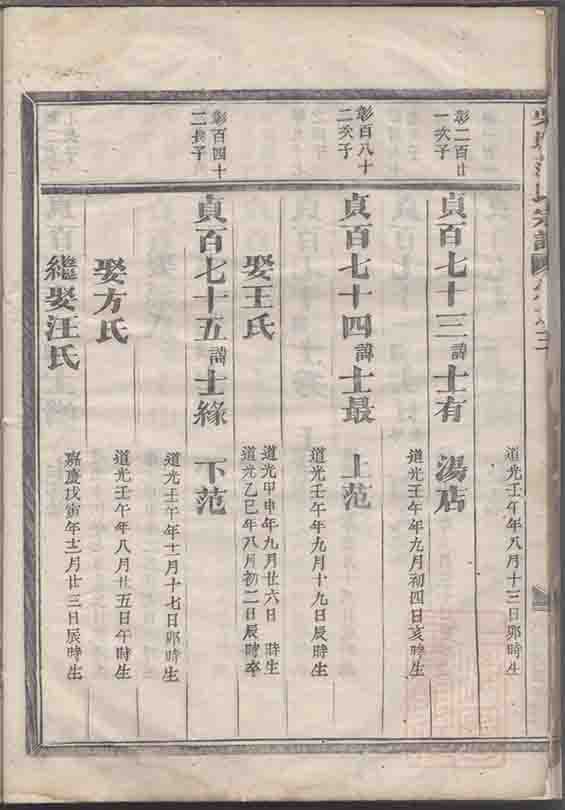 宗譜
道光壬午年八月十三日卯時生
彰二百廿
一次子
貞百七十三諱士有 湯店
道光壬午年九月初四日亥時生
彰百八十
二次子
貞百七十四諱士最 上范
道光壬午年九月十九日辰時生
娶王氏
道光甲申年九月廿六日 時生
道光乙巳年八月初二日辰時卒
彰百四十
二長子
貞百七十五諱士緣 下范
道光壬午年十一月十七日卯時生
娶方氏
道光壬午年八月廿五日午時生
繼娶汪氏
嘉慶戊寅年十二月廿三日辰時生